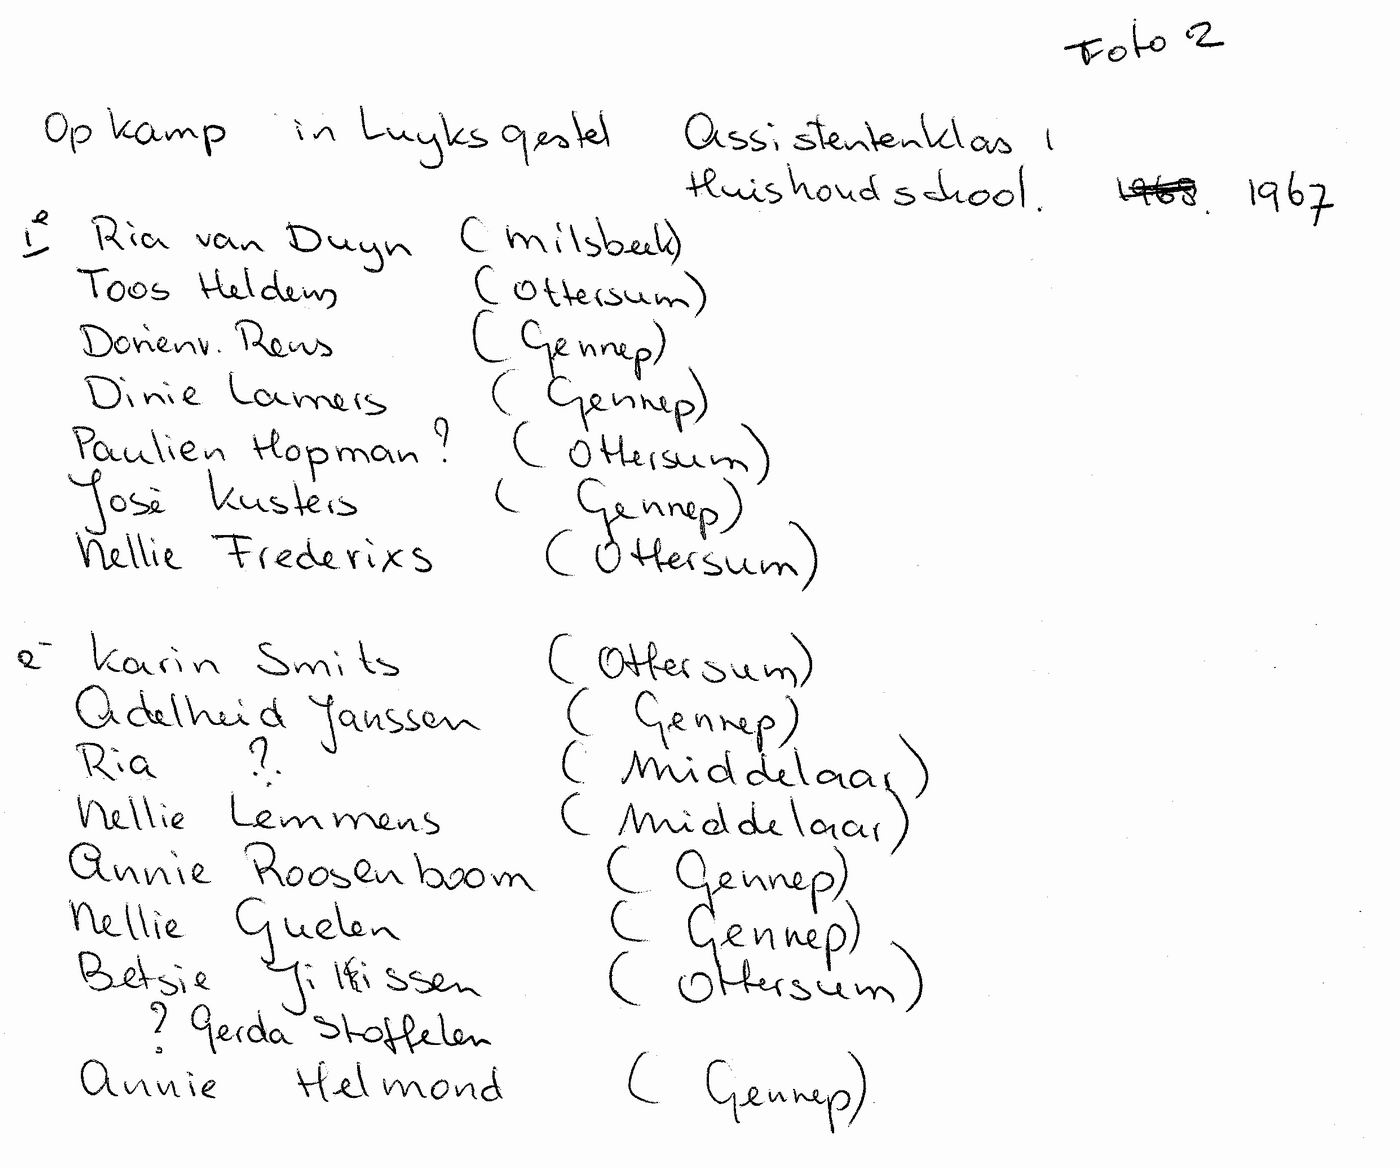 Foto 2
Op kamp in Luyksgestel Assistentenklas 1
Huishoudschool. 1968. 1967
1e Ria van Duyn (Milsbeek)
Toos Heldens (Ottersum)
Dorien v. Rens (Gennep)
Dinie Lamers (Gennep)
Paulien Hopman? (Ottersum)
José Kusters (Gennep)
Nellie Frederixs (Ottersum)
2e Karin Smits (Ottersum)
Adelheid Janssen (Gennep)
Ria ? (Middelaar)
Nellie Lemmens (Middelaar)
Annie Roosenboom (Gennep)
Nellie Guelen (Gennep)
Betsie (Ottersum)
? Gerda Stoffelen
Annie Helmond (Gennep)